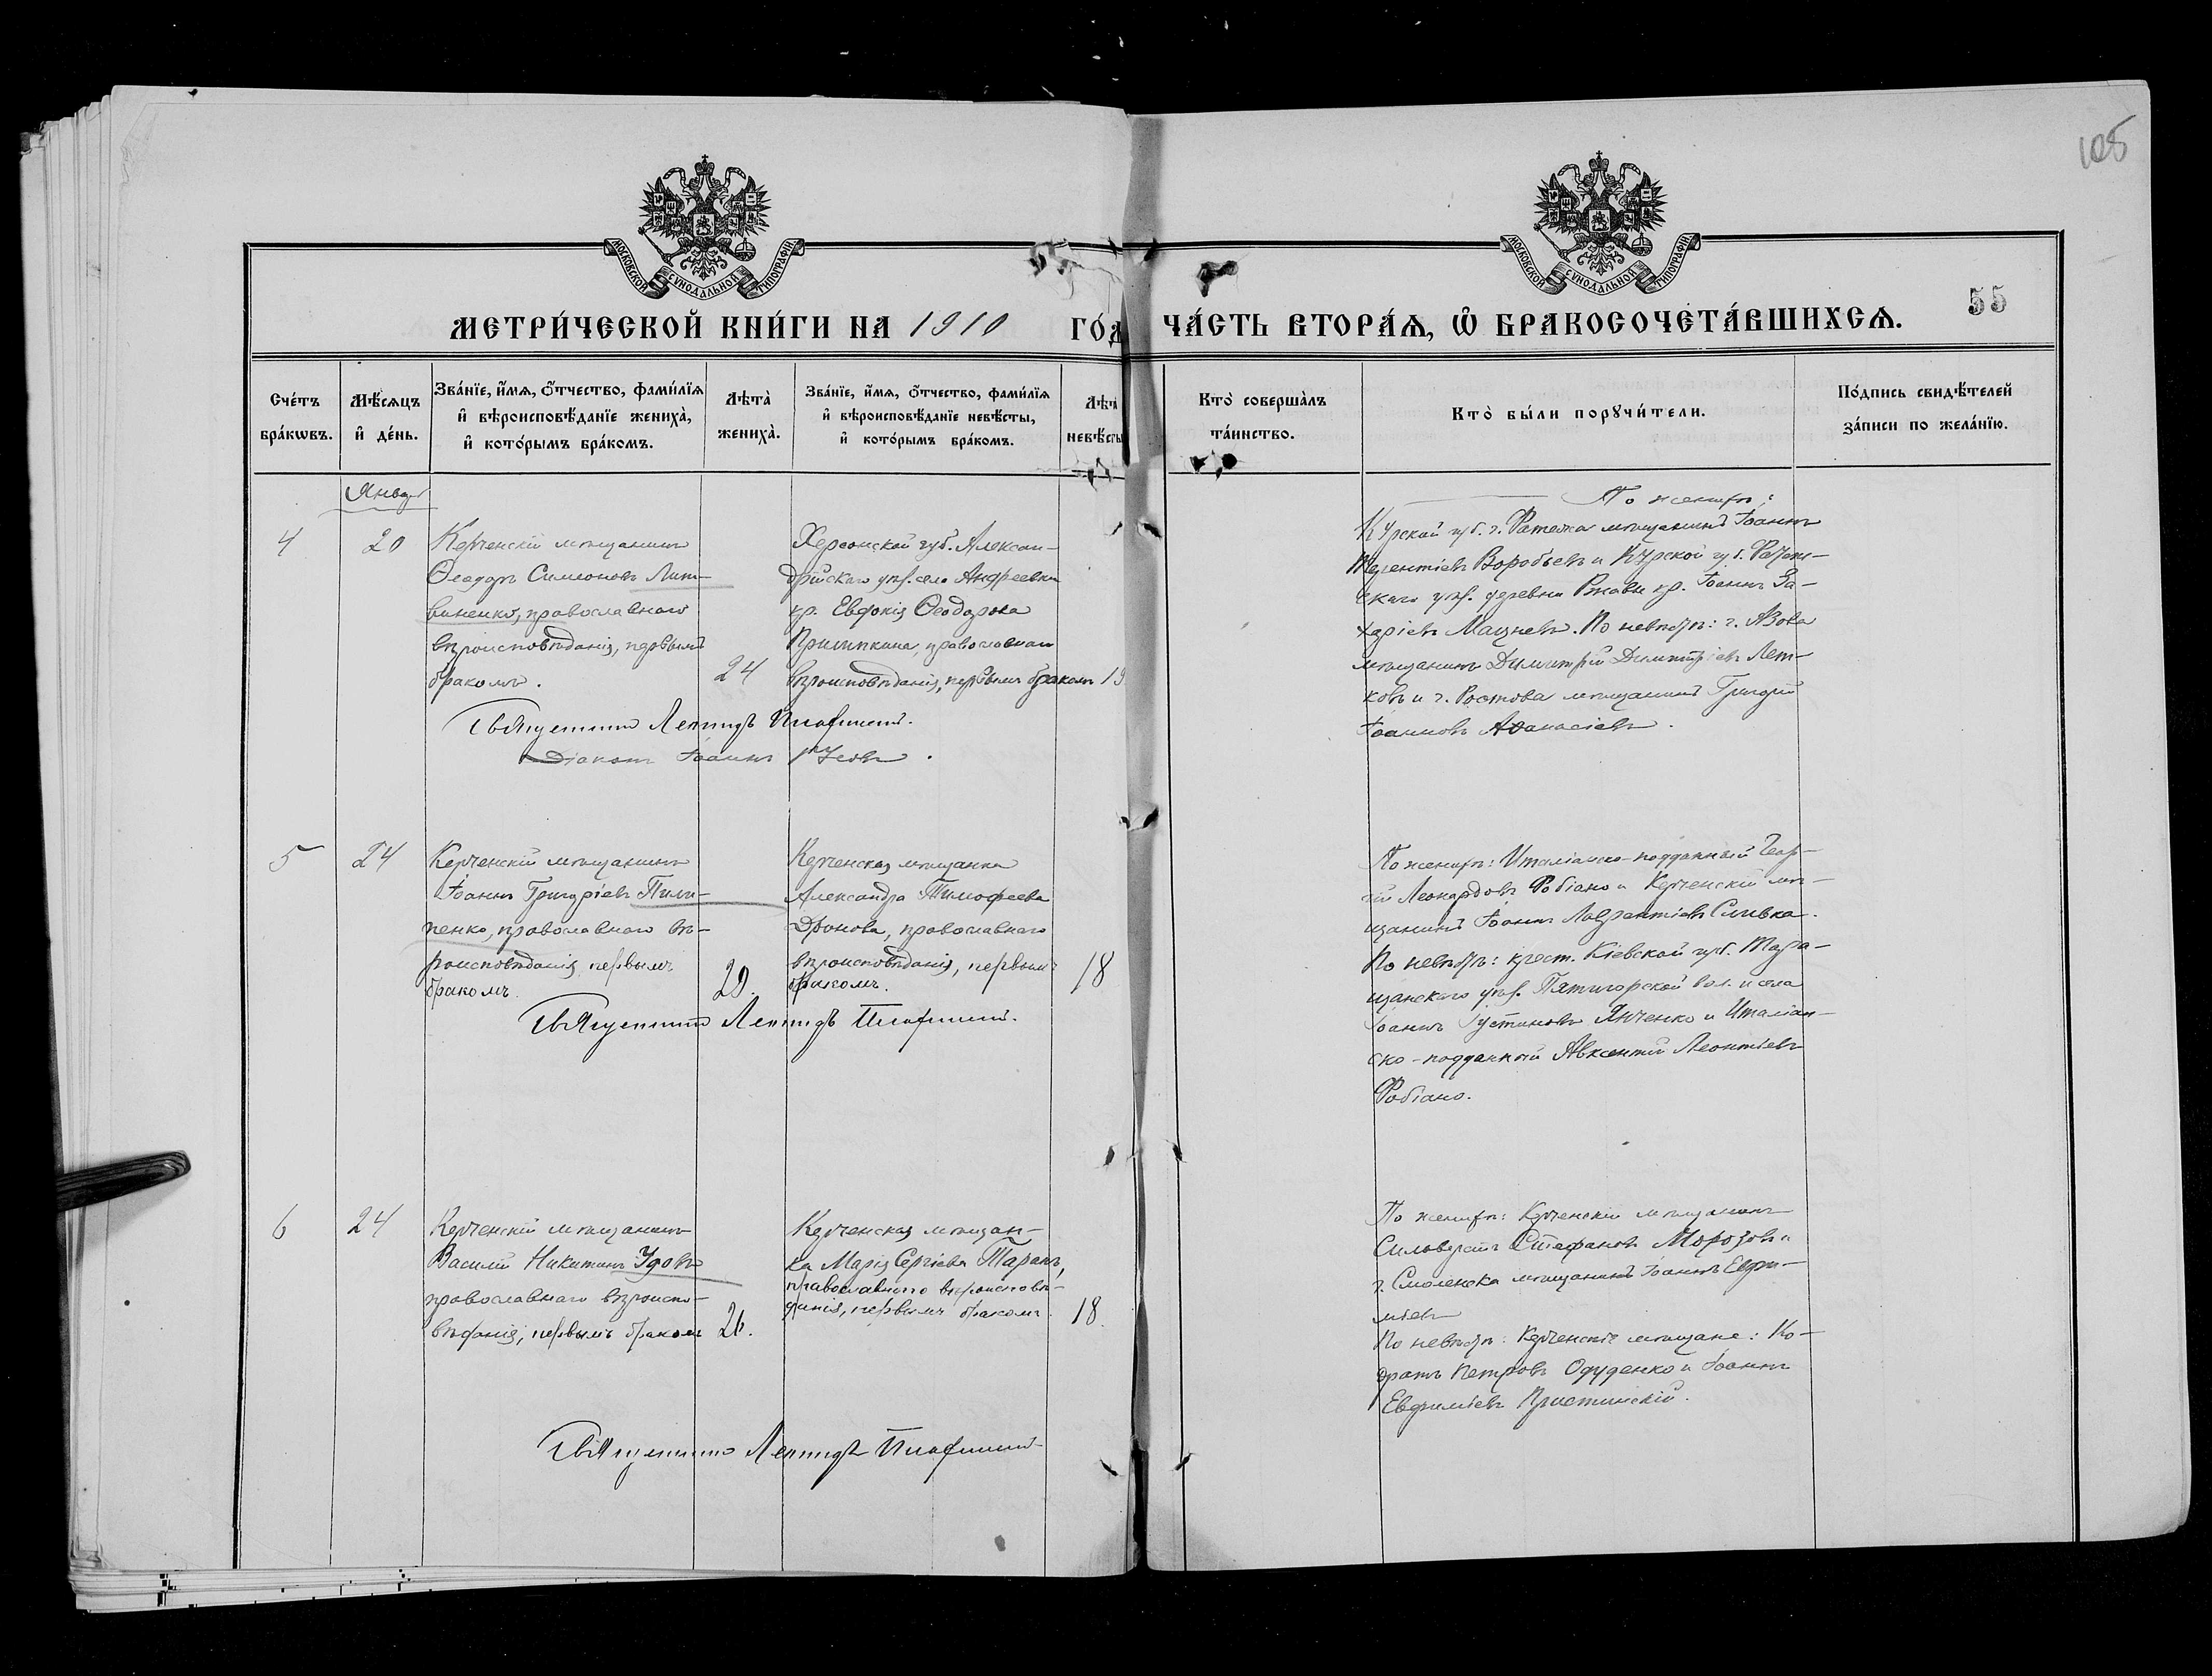 105
МОСКОВСКОЙ СУНОДАЛЬНОЙ ТИПОГРАФІИ
МОСКОВСКОЙ СУНОДАЛЬНОЙ ТИПОГРАФІИ
МЕТРИ́ЧЕСКОЙ КНИ́ГИ НА 1910 ГО́Д
ЧА́СТЬ ВТОРА́Ѧ, Ѡ҆ БРАКОСОЧЕТА́ВШИХСѦ.
55
Сче́тъ
бра́кѡвъ.
Мѣ́сѧцъ
и҆ де́нь.
Зва́нїе, и҆́мѧ, ѻ҆́тчество, фами́лїѧ
и҆ вѣроисповѣ́данїе жениха̀,
и҆ кото́рымъ бра́комъ.
Лѣта̀
жениха̀.
Зва́нїе, и҆́мѧ, ѻ҆́тчество, фами́лїѧ
и҆ вѣроисповѣ́данїе невѣ́сты,
и҆ кото́рымъ бра́комъ.
Лѣта̀
невѣ́сты
Кто̀ соверша̀лъ
та́инство.
Кто̀ бы́ли порꙋчи́тели.
По́дпись свидѣ́телей
за́писи по жела́нїю.
Январь
4
20
Керченскій мѣщанинъ
Ѳеодоръ Симеоновъ Лит-
виненко, православнаго
вѣроисповѣданія, первымъ
бракомъ.
24
Херсонской губ. Алексан-
дрійскаго уѣз. села Андреевки
кр. Евдокія Ѳеодорова
православнаго
вѣроисповѣданія, первымъ бракомъ
19
Священникъ Леонидъ
Діаконъ Іоаннъ
По женихѣ:
Курской губ. г. Фатежа мѣщанинъ Іоаннъ
Терентіевъ Воробьевъ и Курской губ.
скаго уѣз. деревни Ржавы кр. Іоаннъ За-
харіевъ Мацневъ. По невѣстѣ: г. Азова
мѣщанинъ Димитрій Димитріевъ Лет-
ковъ и г. Ростова мѣщанинъ Григорій
Іоанновъ Аѳанасіевъ.
5
24
Керченскій мѣщанинъ
Іоаннъ Григоріевъ Пили-
пенко, православнаго вѣ-
роисповѣданія, первымъ
бракомъ.
29.
Керченская мѣщанка
Александра Тимофеева
Дронова, православнаго
вѣроисповѣданія, первымъ
бракомъ.
18
Священникъ Леонидъ
По женихѣ: Италіанско-подданный Геор-
гій Леонардовъ Фабіано и Керченскій мѣ-
щанинъ Іоаннъ Лаврентіевъ Сливка.
По невѣстѣ: крест. Кіевской губ. Тара-
щанскаго уѣз. Пятигорской вол. и села
Іоаннъ Іустиновъ Янченко и Италіан-
ско-подданный Авксентій Леонтіевъ
Фабіано.
6
24
Керченскій мѣщанинъ
Василій Никитинъ Удовъ
православнаго вѣроиспо-
вѣданія, первымъ бракомъ
26.
Керченская мѣщан-
ка Марія Сергіева Таранъ,
православнаго вѣроисповѣ-
данія, первымъ бракомъ.
18.
Священникъ Леонидъ
По женихѣ: Керченскій мѣщанинъ
Сильвестръ Стефановъ Морозовъ и
г. Смоленска мѣщанинъ Іоаннъ Ефи-
міевъ
По невѣстѣ: Керченскіе мѣщане: Ко-
дратъ Петровъ Одуденко и Іоаннъ
Евфиміевъ Пристинскій.